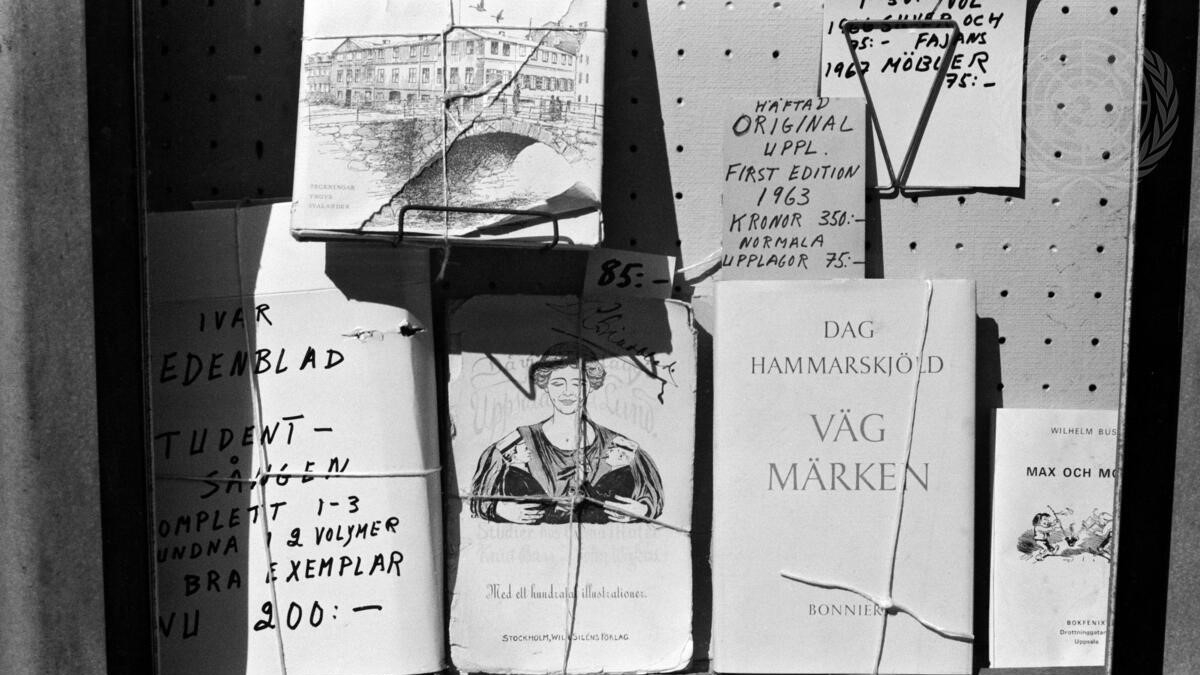 TECKNINGAR
YNGVE
SVALANDER
VOL
OCH
75:- FAJANS
1967 MÖBLER
75:-
HÄFTAD
ORIGINAL
UPPL.
FIRST EDITION
1963
KRONOR 350:-
NORMALA
UPPLAGOR 75:-
85:-
IVAR
EDENBLAD
TUDENT-
SÅNGEN
OMPLETT 1-3
UNDNA I 2 VOLYMER
BRA EXEMPLAR
NU 200:-
Uppsala Lund.
Med ett hundratal illustrationer.
STOCKHOLM, WILH. SILÉNS FÖRLAG
DAG
HAMMARSKJÖLD
VÄG
MÄRKEN
BONNIERS
WILHELM BUS
MAX OCH MO
BOKFENIX
Drottninggatan
Uppsala